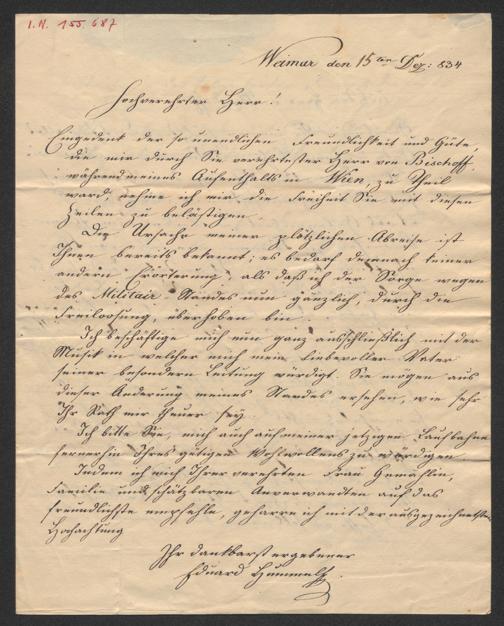 I. N. 155.687
Weimar den 15ten Dez: 834
Hochverehrter Herr!
Eingedenk der so unendlichen Freundlichkeit und Güte,
die mir durch Sie verehrtester Herr von Bischoff
während meines Aufenthalts in Wien, zu Theil
ward, nehme ich mir die Freiheit Sie mit diesen
Zeilen zu belästigen.
Die Ursache meiner plötzlichen Abreise ist
Ihnen bereits bekannt; es bedarf demnach keiner
andern Erörterung, als daß ich der Sorge wegen
des Militair-Standes nun gänzlich, durch die
Freiloosung, überhoben bin.
Ich beschäftige mich nun ganz ausschließlich mit der
Musik in welcher mich mein liebevoller Vater
seiner besondern Leitung würdigt. Sie mögen aus
dieser Änderung meines Standes ersehen, wie sehr
Ihr Rath mir theuer sey.
Ich bitte Sie, mich auch auf meiner jetzigen Laufbahn
fernerhin Ihres gütigen Wohlwollens zu würdigen.
Indem ich mich Ihrer verehrten Frau Gemahlin,
Familie und schätzbaren Anverwandten auf das
freundlichste empfehle, geharre ich mit der ausgezeichnetsten
Hochachtung
Ihr dankbarst ergebener
Eduard Hummel